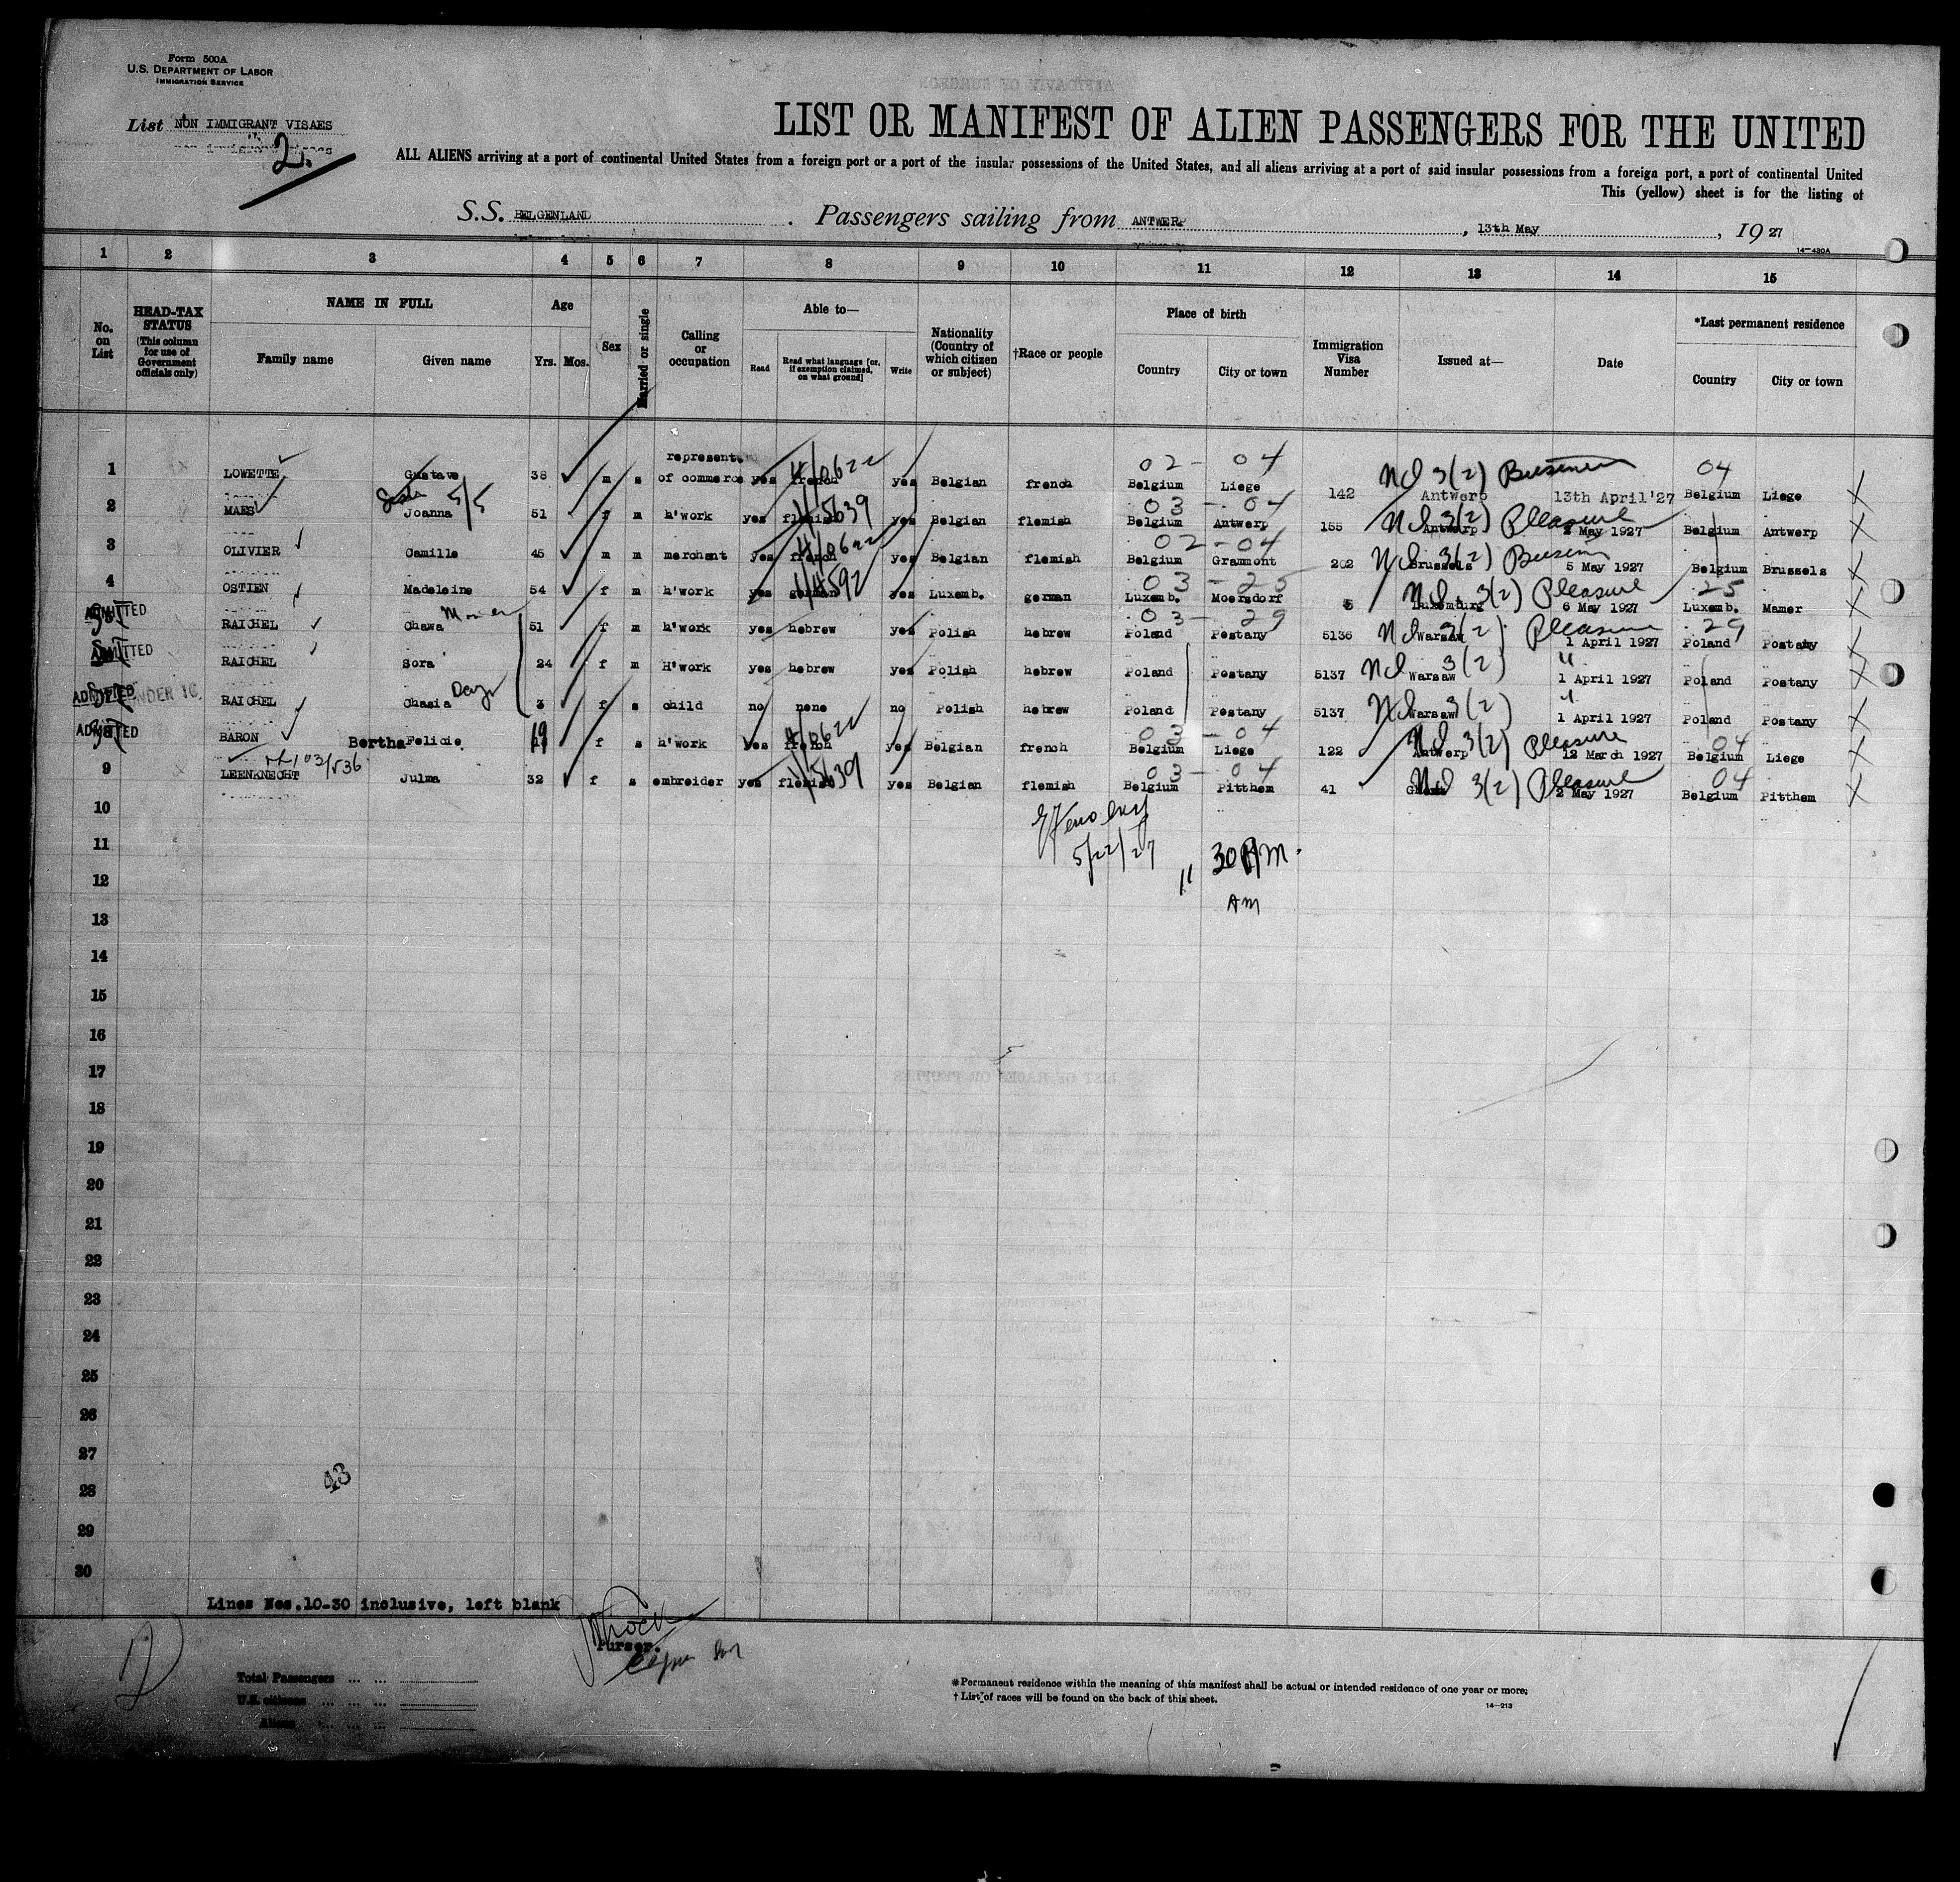 Form 500A
U.S. DEPARTMENT OF LABOR
IMMIGRATION SERVICE
List NON IMMIGRANT VISAES
2.
LIST OR MANIFEST OF ALIEN PASSENGERS FOR THE UNITED
ALL ALIENS arriving at a port of continental United States from a foreign port or a port of the insular possessions of the United States, and all aliens arriving at a port of said insular possessions from a foreign port, a port of continental United
This (yellow) sheet is for the listing of
S.S. BELGENLAND. Passengers sailing from ANTWERP, 13th May, 19 27
14-430A
1 2 3 4 5 6 7 8 9 10 11 12 13 14 15
No. on List
HEAD-TAX STATUS (This column for use of Government officials only)
NAME IN FULL
Family name Given name
Age
Yrs. Mos.
Sex
Married or single
Calling or occupation
Able to—
Read Read what language [or, if exemption claimed, on what ground] Write
Nationality (Country of which citizen or subject)
†Race or people
Place of birth
Country City or town
Immigration Visa Number
Issued at—
Date
*Last permanent residence
Country City or town
02 - 04 04
1 LOWETTE Gustave 38 m s represent. of commerce yes french yes Belgian french Belgium Liege 142 Antwerp 13th April'27 Belgium Liege
4/0622 3(2) Business
03 - 04
2 MAES Joanna 51 f m h'work yes flemish yes Belgian flemish Belgium Antwerp 155 Antwerp 2 May 1927 Belgium Antwerp
5/5 1/5639 3(2) Pleasure
02 - 04
3 OLIVIER Camille 45 m m merchant yes french yes Belgian flemish Belgium Grammont 202 Brussels 5 May 1927 Belgium Brussels
4/0622 3(2)
03 - 25 25
4 OSTIEN Madeleine 54 f m h'work yes german yes Luxemb. german Luxemb. Moersdorf 5 Luxemburg 6 May 1927 Luxemb. Mamer
3(2) Pleasure
03 - 29 29
ADMITTED RAICHEL Chawa 51 f m h'work yes hebrew yes Polish hebrew Poland Postany 5136 Warsaw 1 April 1927 Poland Postany
3(2) Pleasure
ADMITTED RAICHEL Sora 24 f m H'work yes hebrew yes Polish hebrew Poland Postany 5137 Warsaw 1 April 1927 Poland Postany
3(2) "
ADMITTED UNDER 16. RAICHEL Chasia 3 f s child no none no Polish hebrew Poland Postany 5137 Warsaw 1 April 1927 Poland Postany
3(2) "
03 - 04 04
ADMITTED BARON Bertha Felicie 19 f s h'work yes french yes Belgian french Belgium Liege 122 Antwerp 12 March 1927 Belgium Liege
4/0622 3(2) Pleasure
03 - 04 04
9 LEENKNECHT Julma 32 f s embreider yes flemish yes Belgian flemish Belgium Pitthem 41 2 May 1927 Belgium Pitthem
1/5639 3(2) Pleasure
10
11
5/22/27
11 30 AM.
12
AM
13
14
15
16
17
18
19
20
21
22
23
24
25
26
27
43
28
29
30
Lines Nos.10-30 inclusive, left blank
Purser.
Total Passengers
U.S. citizens
Aliens
*Permanent residence within the meaning of this manifest shall be actual or intended residence of one year or more.
†List of races will be found on the back of this sheet.
14-213